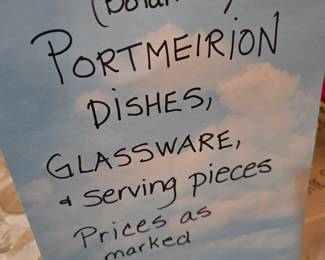 PORTMEIRION
DISHES,
GLASSWARE,
& serving pieces
Prices as
marked